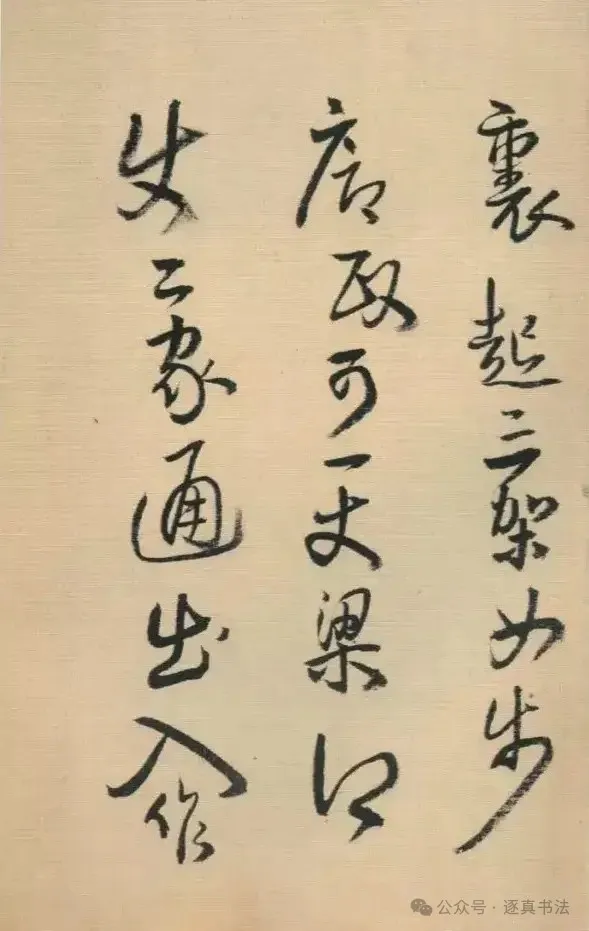 裏起三架如步
廊段可一丈梁
二家通出入作
公众号·逐真书法